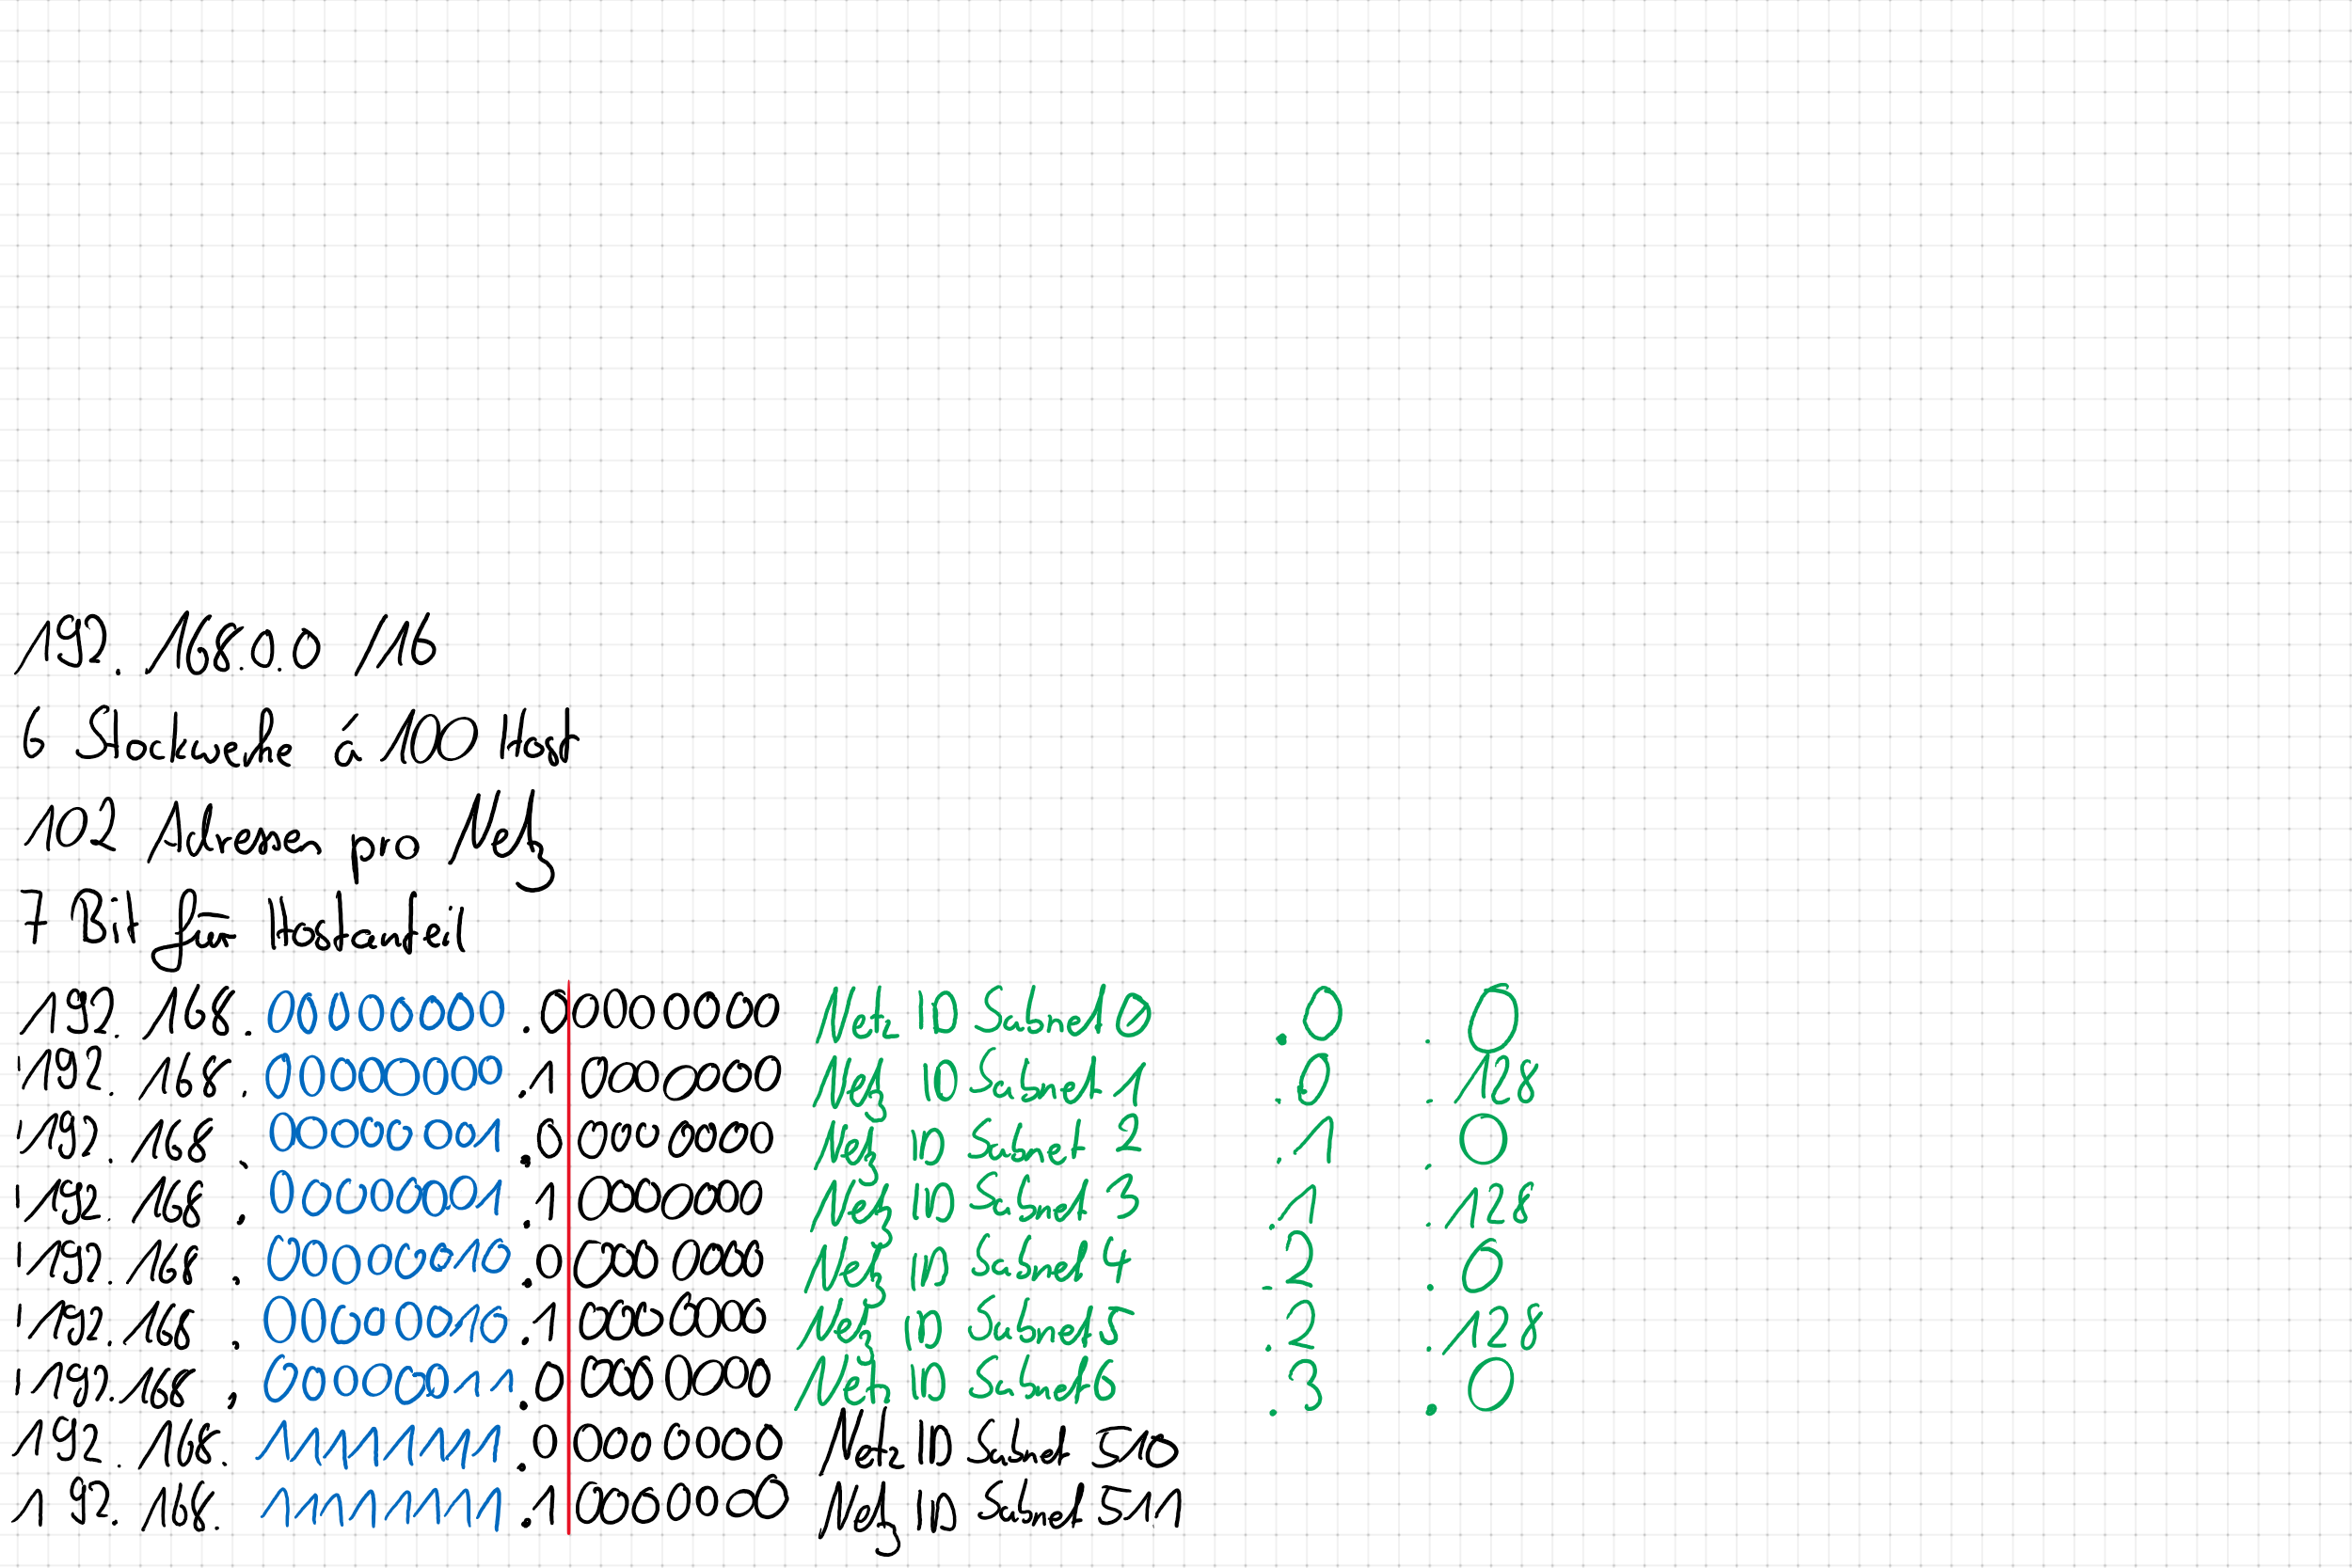 192.168.0.0 /16
6 Stockwerke á 100 Host
102 Adressen pro Netz
7 Bit für Hostanteil
192.168.00000000.00000000 Netz ID Subnet 0 .0 .0
192.168.00000000.10000000 Netz ID Subnet 1 .0 .128
192.168.00000001.00000000 Netz ID Subnet 2 .1 .0
192.168.00000001.10000000 Netz ID Subnet 3 .1 .128
192.168.00000010.00000000 Netz ID Subnet 4 .2 .0
192.168.00000010.10000000 Netz ID Subnet 5 .2 .128
192.168.00000011.00000000 Netz ID Subnet 6 .3 .0
192.168.11111111.00000000 Netz ID Subnet 510
192.168.11111111.10000000 Netz ID Subnet 511